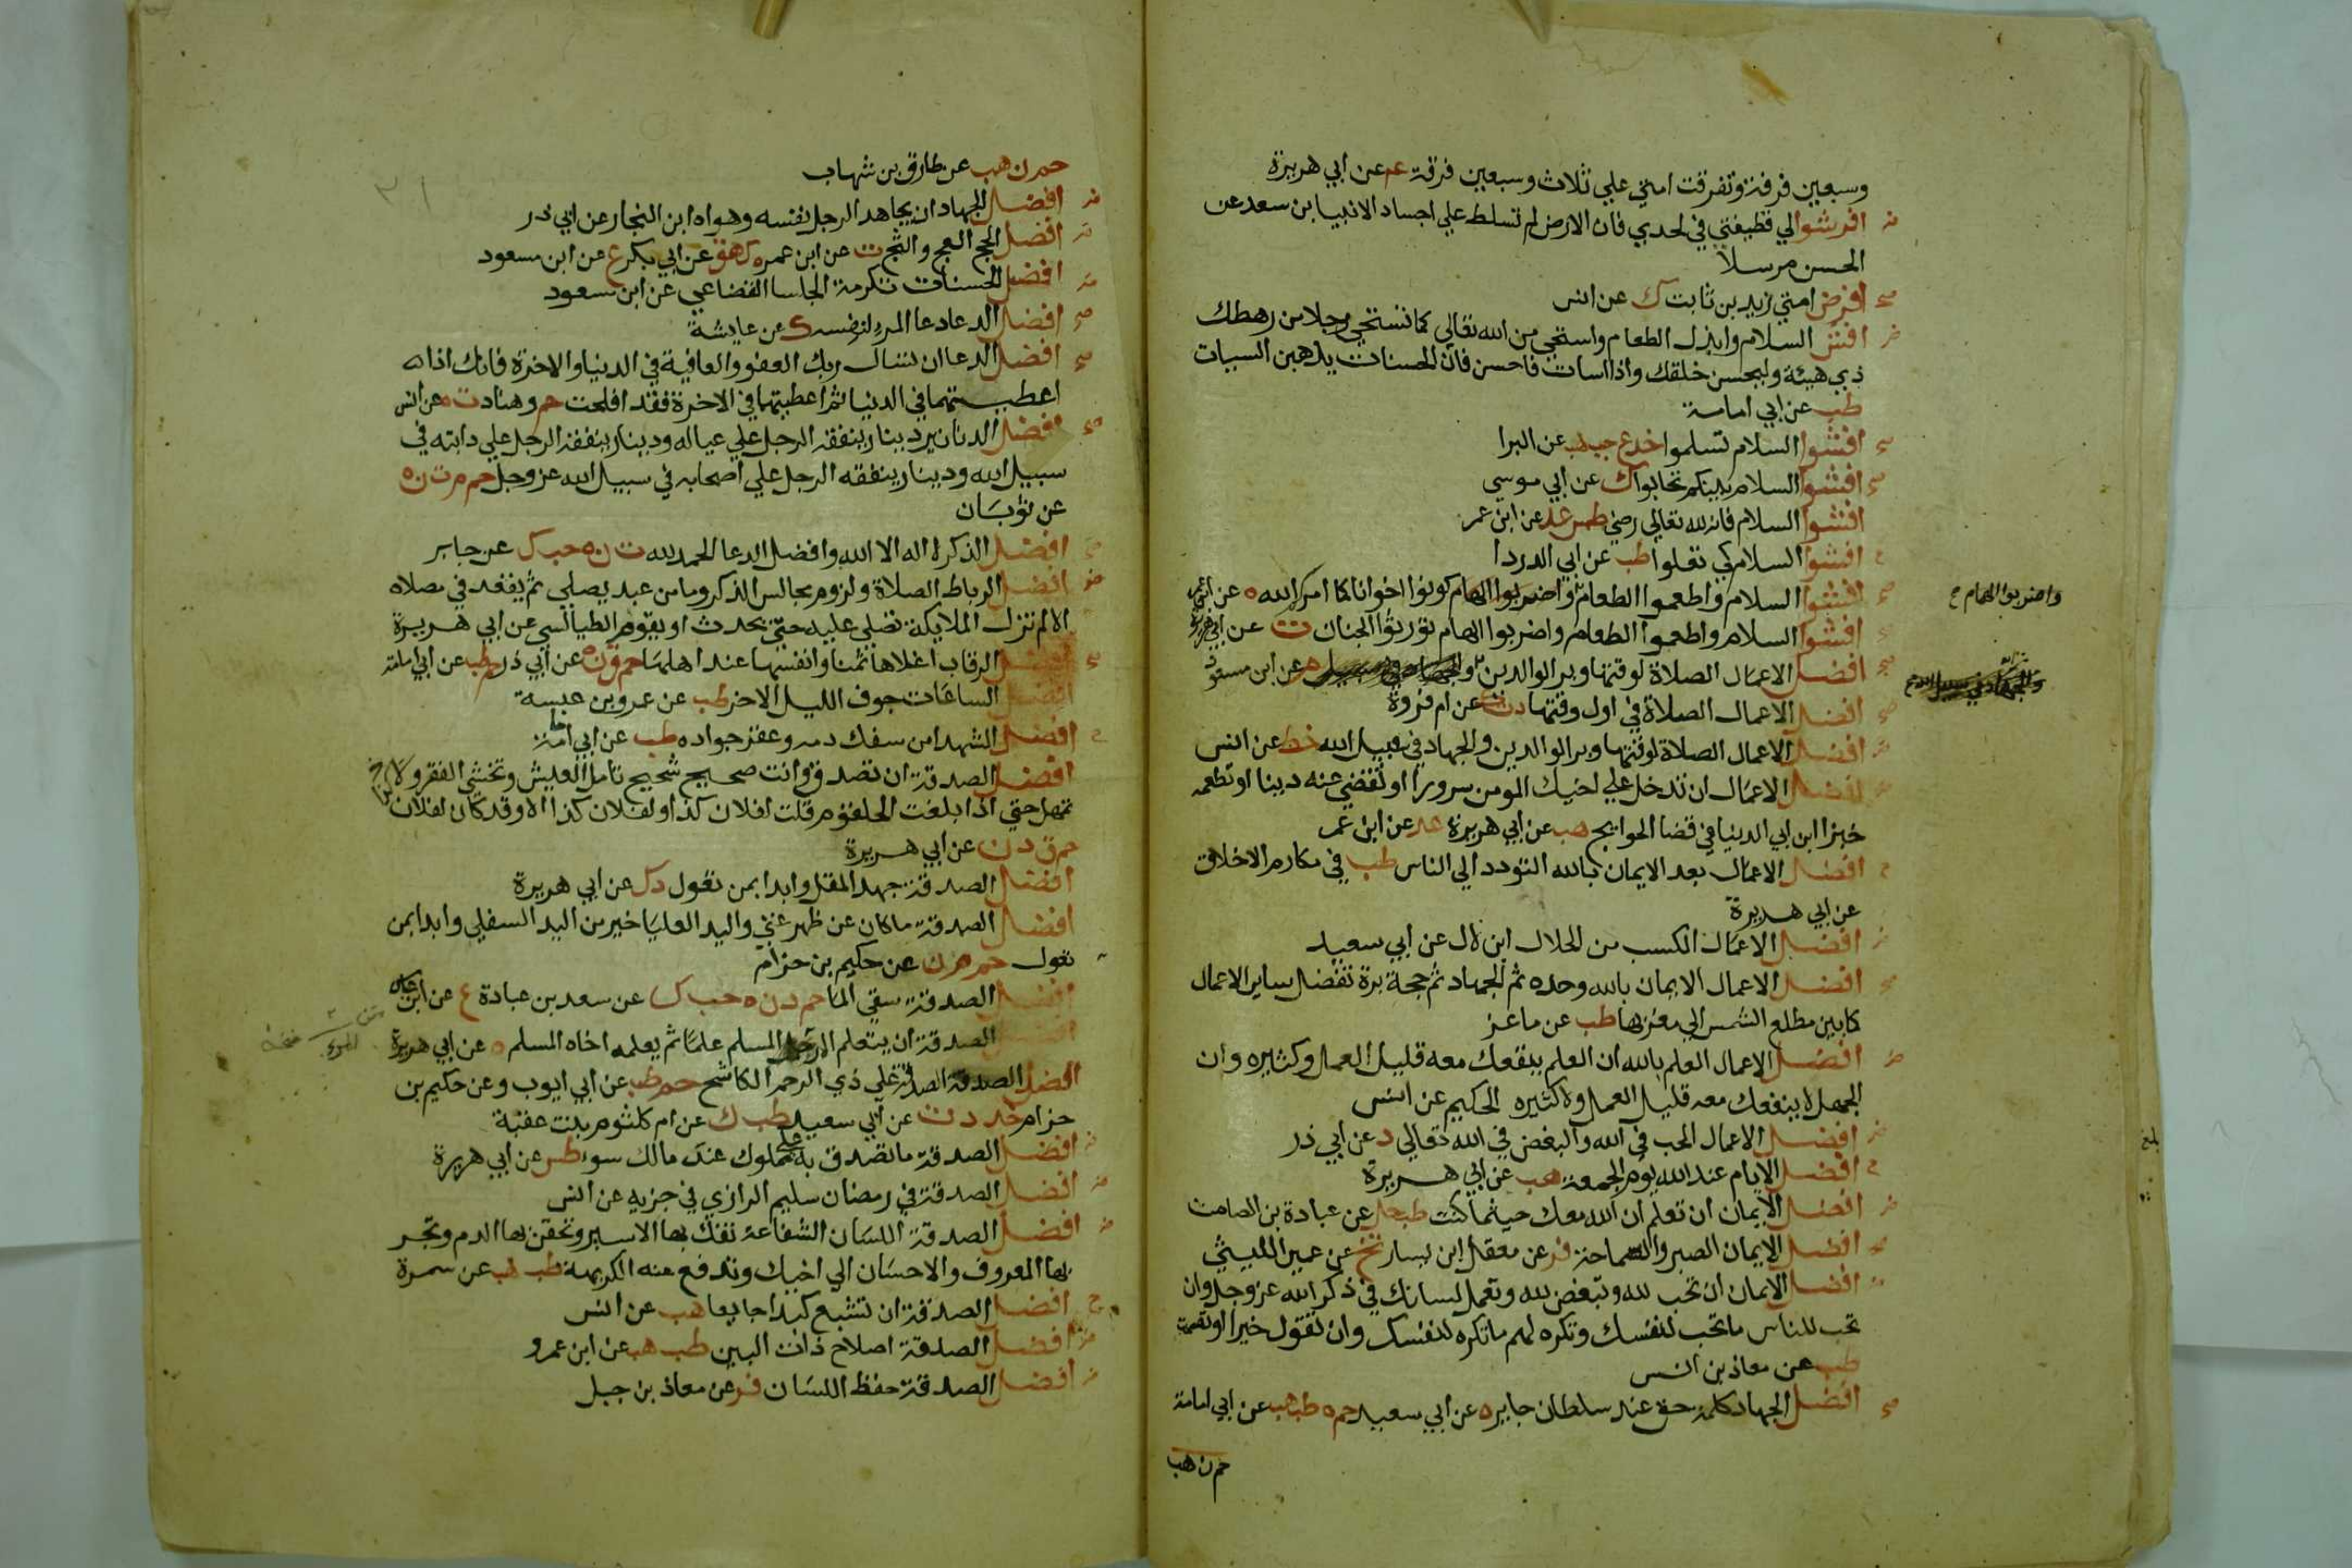 وسبعين فرقة وتفرقت امتي علي ثلاث وسبعين فرقة عم عن ابي هريرة
افرشوا لي قطيفتي في لحدي فان الارض لم تسلط علي اجساد الانبيا ابن سعد عن
الحسن مرسلا
افرض امتي زيد بن ثابت ك عن انس
افش السلام وابذل الطعام واستحي من الله تعالي كما تستحي رجلا من رهطك
ذي هيئة وليحسن خلقك واذا اسات فاحسن فان الحسنات يذهبن السيات
طب عن ابي امامة
افشوا السلام تسلموا خد ع حب هب عن البرا
افشوا السلام بينكم تحابوا ك عن ابي موسي
افشوا السلام فانه لله تعالي رضي طس عد عن ابن عمر
افشوا السلام كي تعلوا طب عن ابي الدردا
افشوا السلام واطعموا الطعام واضربوا الهام كونوا اخوانا كما امركم الله ه عن ابن عمر
واضربوا الهام ح
افشوا السلام واطعموا الطعام واضربوا الهام تورثوا الجنان ت عن ابي هريرة
افضل الاعمال الصلاة لوقتها وبر الوالدين م عن ابن مسعود
افضل الاعمال الصلاة في اول وقتها د ت ك عن ام فروة
افضل الاعمال الصلاة لوقتها وبر الوالدين والجهاد في سبيل الله خط عن انس
افضل الاعمال ان تدخل علي اخيك المومن سرورا او تقضي عنه دينا او تطعمه
خبزا ابن ابي الدنيا في قضا الحوايج هب عن ابي هريرة عد عن ابن عمر
افضل الاعمال بعد الايمان بالله التودد الي الناس طب في مكارم الاخلاق
عن ابي هريرة
افضل الاعمال الكسب من الحلال ابن لال عن ابي سعيد
افضل الاعمال الايمان بالله وحده ثم الجهاد ثم حجة برة تفضل ساير الاعمال
كما بين مطلع الشمس الي مغربها طب عن ماعز
افضل الاعمال العلم بالله ان العلم ينفعك معه قليل العمل وكثيره وان
الجهل لا ينفعك معه قليل العمل ولا كثيره الحكيم عن انس
افضل الاعمال الحب في الله والبغض في الله تعالي د عن ابي ذر
افضل الايام عند الله يوم الجمعة هب عن ابي هريرة
افضل الايمان ان تعلم ان الله معك حيثما كنت طب حل عن عبادة بن الصامت
افضل الايمان الصبر والسماحة فر عن معقل ابن يسار تخ عن عمير الليثي
افضل الايمان ان تحب لله وتبغض لله وتعمل لسانك في ذكر الله عز وجل وان
تحب للناس ما تحب لنفسك وتكره لهم ما تكره لنفسك وان تقول خيرا او تصمت
طب عن معاذ بن انس
افضل الجهاد كلمة حق عند سلطان جاير ه عن ابي سعيد حم ه طب هب عن ابي امامة
حم ن هب
حم ن هب عن طارق بن شهاب
افضل الجهاد ان يجاهد الرجل نفسه وهواه ابن النجار عن ابي ذر
افضل الحج العج والثج ت عن ابن عمر ه ك هق عن ابي بكر ع عن ابن مسعود
افضل الحسنات تكرمة الجلسا القضاعي عن ابن مسعود
افضل الدعا دعا المرء لنفسه ك عن عايشة
افضل الدعا ان تسال ربك العفو والعافية في الدنيا والاخرة فانك اذا
اعطيتهما في الدنيا ثم اعطيتهما في الاخرة فقد افلحت حم وهناد ت ه عن انس
افضل الدنانير دينار ينفقه الرجل علي عياله ودينار ينفقه الرجل علي دابته في
سبيل الله ودينار ينفقه الرجل علي اصحابه في سبيل الله عز وجل حم م ت ن ه
عن ثوبان
افضل الذكر لا اله الا الله وافضل الدعا الحمد لله ت ن ه حب ك عن جابر
افضل الرباط الصلاة ولزوم مجالس الذكر وما من عبد يصلي ثم يقعد في مصلاه
الا لم تزل الملايكة تصلي عليه حتي يحدث او يقوم الطيالسي عن ابي هريرة
افضل الرقاب اغلاها ثمنا وانفسها عند اهلها حم ق ن ه عن ابي ذر حم طب عن ابي امامة
افضل الساعات جوف الليل الاخر طب عن عمرو بن عبسة
افضل الشهدا من سفك دمه وعقر جواده طب عن ابي امامة
افضل الصدقة ان تصدق وانت صحيح شحيح تامل العيش وتخشي الفقر ولا
تمهل حتي اذا بلغت الحلقوم قلت لفلان كذا ولفلان كذا الا وقد كان لفلان كذا
حم ق د ن عن ابي هريرة
افضل الصدقة جهد المقل وابدا بمن تعول د ك عن ابي هريرة
افضل الصدقة ما كان عن ظهر غني واليد العليا خير من اليد السفلي وابدا بمن
تعول حم م ن عن حكيم بن حزام
افضل الصدقة سقي الما حم د ن ه حب ك عن سعد بن عبادة ع عن ابن عباس
افضل الصدقة ان يتعلم المسلم علما ثم يعلمه اخاه المسلم ه عن ابي هريرة
المرء
افضل الصدقة الصدقة علي ذي الرحم الكاشح حم طب عن ابي ايوب وعن حكيم بن
حزام خد د ت عن ابي سعيد طب ك عن ام كلثوم بنت عقبة
افضل الصدقة ما تصدق به علي مملوك عند مالك سوء طس عن ابي هريرة
افضل الصدقة في رمضان سليم الرازي في جزيه عن انس
افضل الصدقة اللسان الشفاعة تفك بها الاسير وتحقن بها الدم وتجر
بها المعروف والاحسان الي اخيك وتدفع عنه الكريهة طب هب عن سمرة
افضل الصدقة ان تشبع كبدا جايعا هب عن انس
افضل الصدقة اصلاح ذات البين طب هب عن ابن عمرو
افضل الصدقة حفظ اللسان فر عن معاذ بن جبل